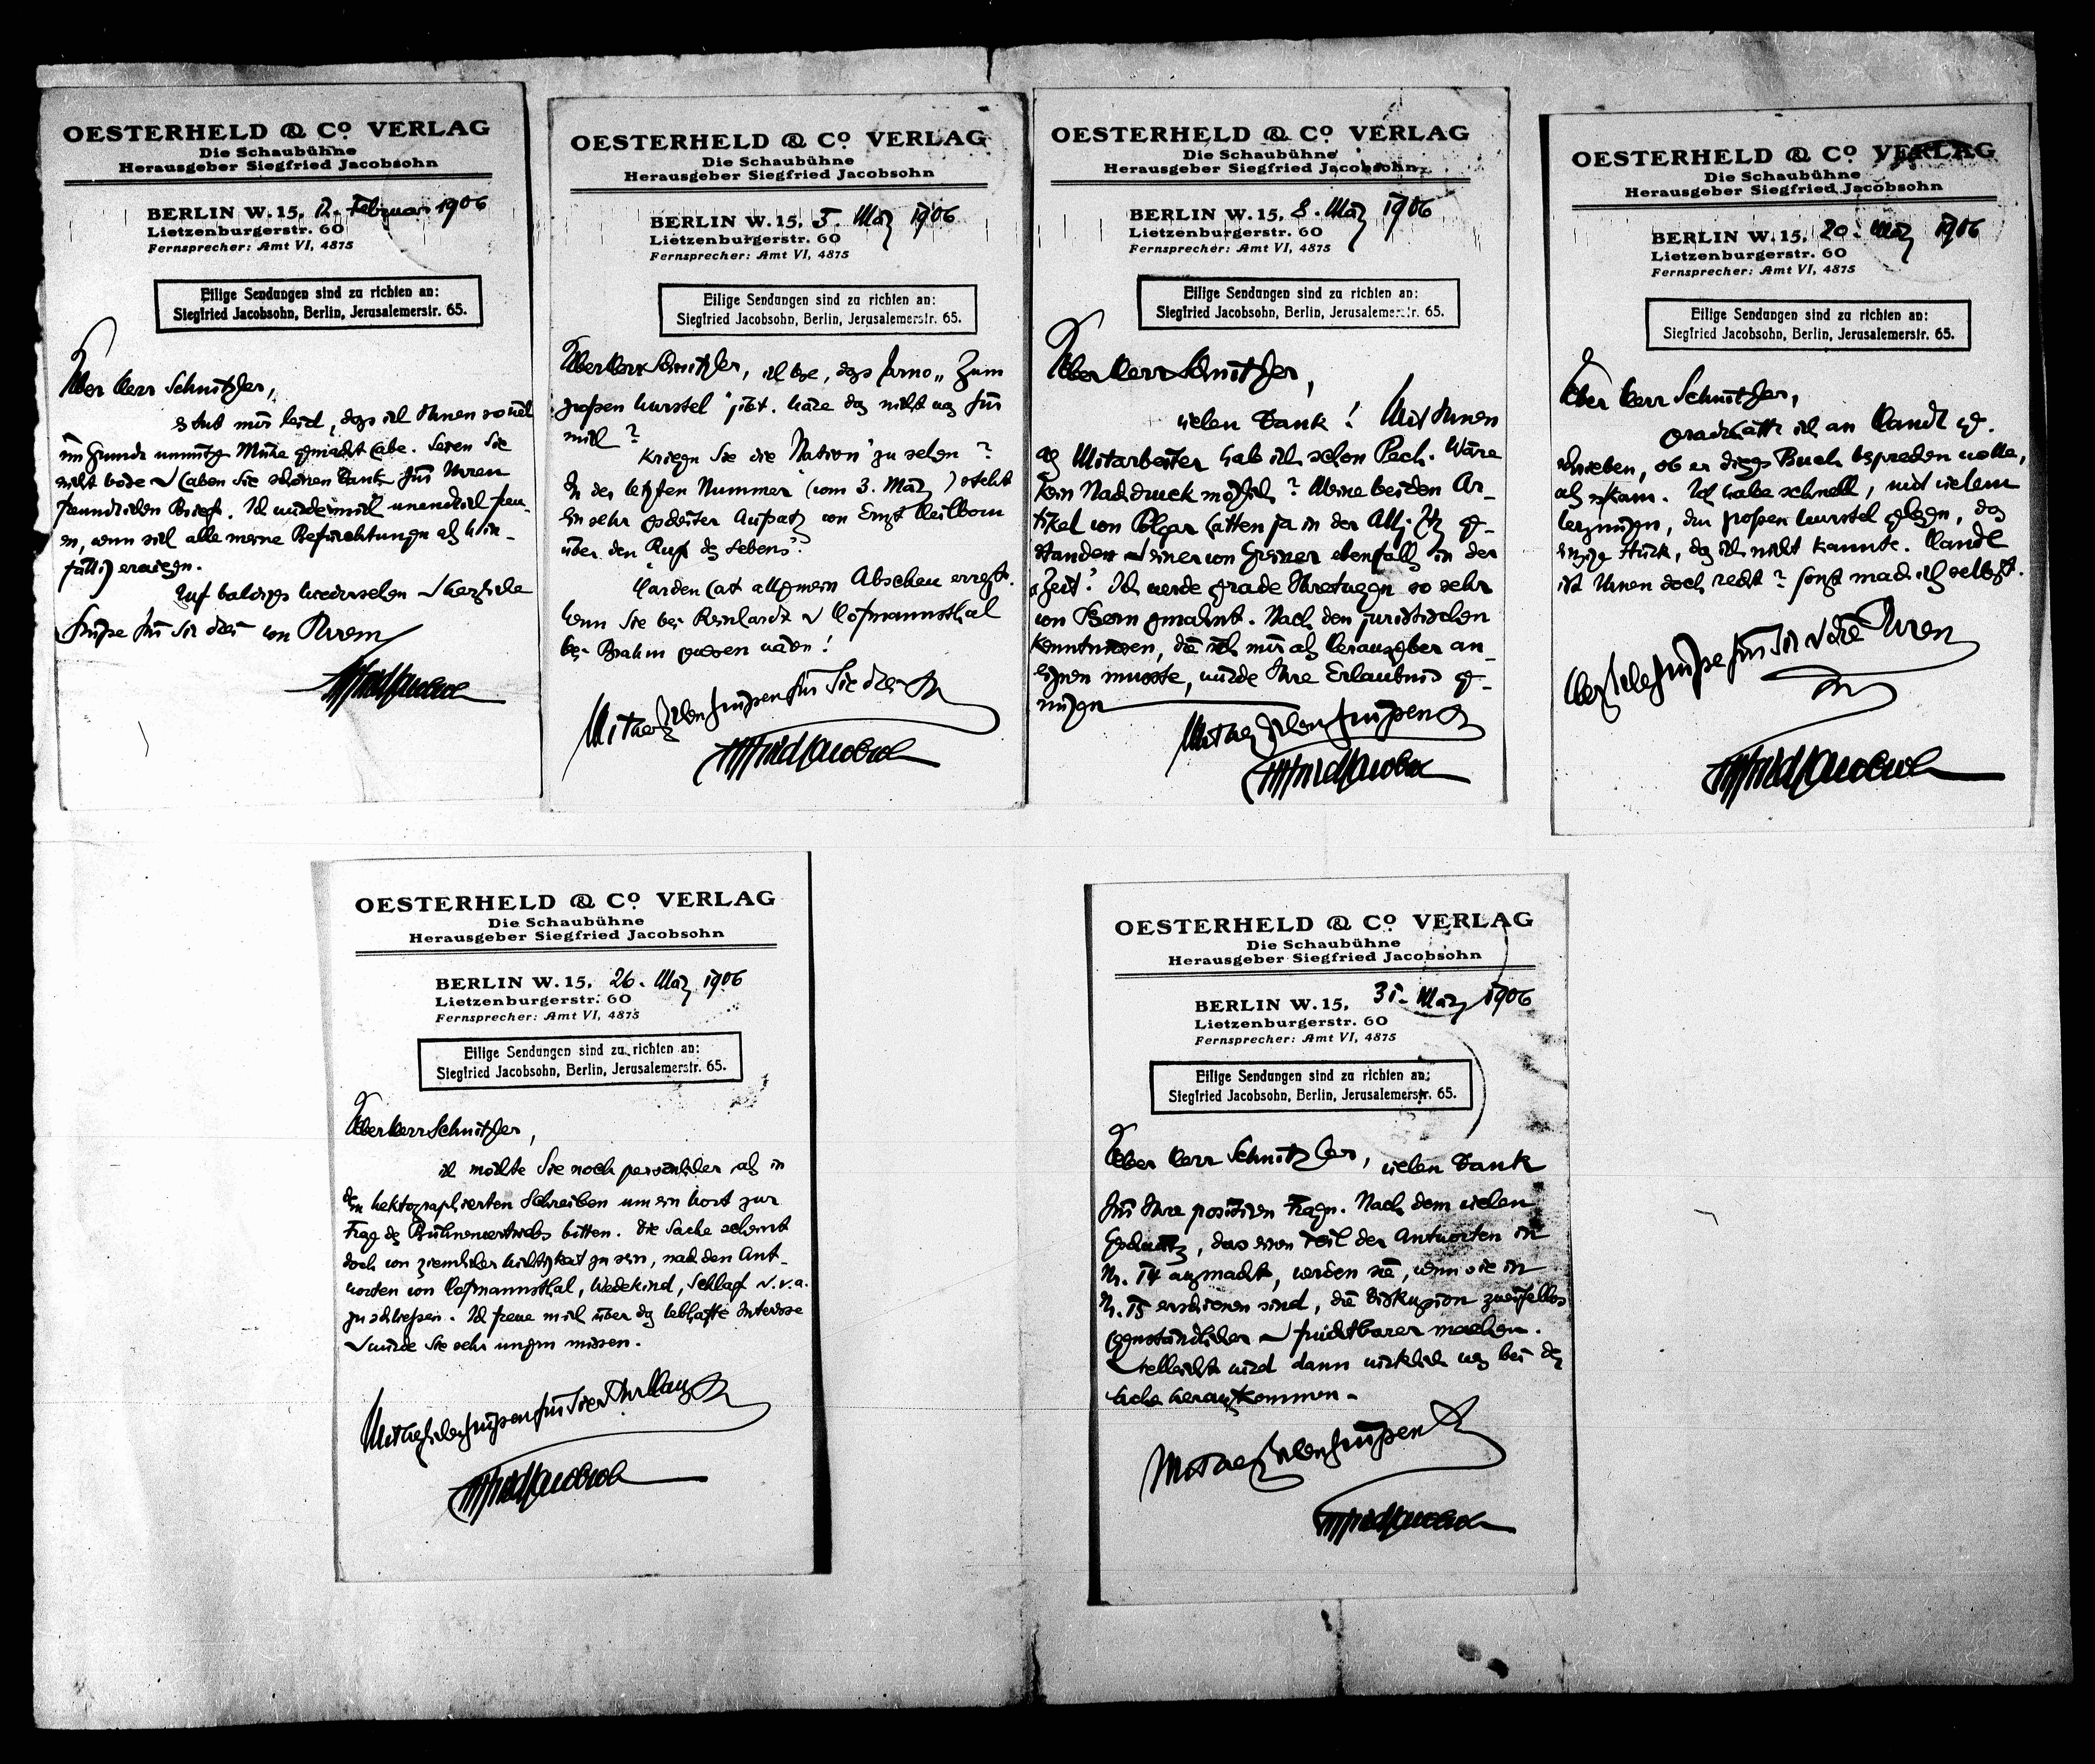 OESTERHELD & Co VERLAG
Die Schaubühne
Herausgeber Siegfried Jacobsohn
BERLIN W. 15, 12. Februar 1906
Lietzenburgerstr. 60
Fernsprecher: Amt VI, 4875
Eilige Sendungen sind zu richten an:
Siegfried Jacobsohn, Berlin, Jerusalemerstr. 65.
Lieber Herr Schnitzler,
es tut mir leid, dass ich Ihnen so viel
im Grunde unnütze Mühe gemacht habe. Seien Sie
nicht böse u haben Sie schönen Dank für Ihren
freundlichen Brief. Ich würde mich unendlich freu-
en, wenn sich alle meine Befürchtungen als hin-
fällig erwiesen.
Auf baldiges Wiedersehen u herzliche
Grüsse für Sie drei von Ihrem
Siegfried Jacobsohn
OESTERHELD & Co VERLAG
Die Schaubühne
Herausgeber Siegfried Jacobsohn
BERLIN W. 15, 5. März 1906
Lietzenburgerstr. 60
Fernsprecher: Amt VI, 4875
Eilige Sendungen sind zu richten an:
Siegfried Jacobsohn, Berlin, Jerusalemerstr. 65.
Lieber Herr Schnitzler, ich lese, dass Jarno „Zum
grossen Wurstel" gibt. Wäre das nicht was für
mich?
Kriegen Sie die „Nation" zu sehen?
In der letzten Nummer (vom 3. März) steht
ein sehr gescheiter Aufsatz von Ernst Heilborn
über den „Ruf des Lebens".
Harden hat allgemein Abscheu erregt.
Wenn Sie bei Reinhardt u Hofmannsthal
bei Brahm gewesen wären!
Mit herzlichen Grüssen für Sie drei Ihr
Siegfried Jacobsohn
OESTERHELD & Co VERLAG
Die Schaubühne
Herausgeber Siegfried Jacobsohn
BERLIN W. 15, 8. März 1906
Lietzenburgerstr. 60
Fernsprecher: Amt VI, 4875
Eilige Sendungen sind zu richten an:
Siegfried Jacobsohn, Berlin, Jerusalemerstr. 65.
Lieber Herr Schnitzler,
vielen Dank! Mit Ihnen
als Mitarbeiter hab ich schon Pech. Wäre
kein Nachdruck möglich? Meine beiden Ar-
tikel von Polgar hatten ja in der Allg. Ztg ge-
standen u einer von Greiner ebenfalls in der
„Zeit". Ich werde grade Ihretwegen so sehr
von Bern gemahnt. Nach den juristischen
Kenntnissen, die ich mir als Herausgeber an-
eignen musste, würde Ihre Erlaubnis ge-
nügen
Mit herzlichen Grüssen Ihr
Siegfried Jacobsohn
OESTERHELD & Co VERLAG
Die Schaubühne
Herausgeber Siegfried Jacobsohn
BERLIN W. 15, 20. März 1906
Lietzenburgerstr. 60
Fernsprecher: Amt VI, 4875
Eilige Sendungen sind zu richten an:
Siegfried Jacobsohn, Berlin, Jerusalemerstr. 65.
Lieber Herr Schnitzler,
grade hatte ich an Handl ge-
schrieben, ob er dieses Buch besprechen wolle,
als es kam. Ich habe schnell, mit vielem
Vergnügen, den grossen Wurstel gelesen, das
einzige Stück, das ich nicht kannte. Handl
ist Ihnen doch recht? Sonst mach ich selbst.
Herzliche Grüsse für Sie u die Ihren
Ihr
Siegfried Jacobsohn
OESTERHELD & Co VERLAG
Die Schaubühne
Herausgeber Siegfried Jacobsohn
BERLIN W. 15, 26. März 1906
Lietzenburgerstr. 60
Fernsprecher: Amt VI, 4875
Eilige Sendungen sind zu richten an:
Siegfried Jacobsohn, Berlin, Jerusalemerstr. 65.
Lieber Herr Schnitzler,
ich möchte Sie noch persönlicher als in
dem hektographierten Schreiben um ein Wort zur
Frage des Bühnenvertriebs bitten. Die Sache scheint
doch von ziemlicher Wichtigkeit zu sein, nach den Ant-
worten von Hofmannsthal, Wedekind, Schlaf u. v. a.
zu schliessen. Ich freue mich über das lebhafte Interesse
u würde Sie sehr ungern missen.
Mit herzlichen Grüssen für Sie u Ihr Haus Ihr
Siegfried Jacobsohn
OESTERHELD & Co VERLAG
Die Schaubühne
Herausgeber Siegfried Jacobsohn
BERLIN W. 15, 31. März 1906
Lietzenburgerstr. 60
Fernsprecher: Amt VI, 4875
Eilige Sendungen sind zu richten an:
Siegfried Jacobsohn, Berlin, Jerusalemerstr. 65.
Lieber Herr Schnitzler, vielen Dank
für Ihre positiven Fragen. Nach dem vielen
Geschwätz, das einen Teil der Antworten in
Nr. 14 ausmacht, werden sie, wenn sie in
Nr. 15 erschienen sind, die Diskussion zweifellos
gegenständlicher u fruchtbarer machen.
Vielleicht wird dann wirklich was bei der
Sache herauskommen.
Mit herzlichen Grüssen Ihr
Siegfried Jacobsohn